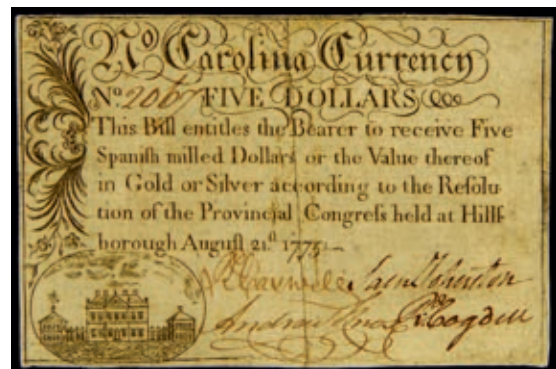 No Carolina Currency
No. 206 FIVE DOLLARS
This Bill entitles the Bearer to receive Five
Spaniſh milled Dollars or the Value thereof
in Gold or Silver according to the Reſolu-
tion of the Provincial Congreſs held at Hillſ-
borough Auguſt 21.st 1775
Rd Caswell Sam Johnston
Andrew Knox R Cogdell